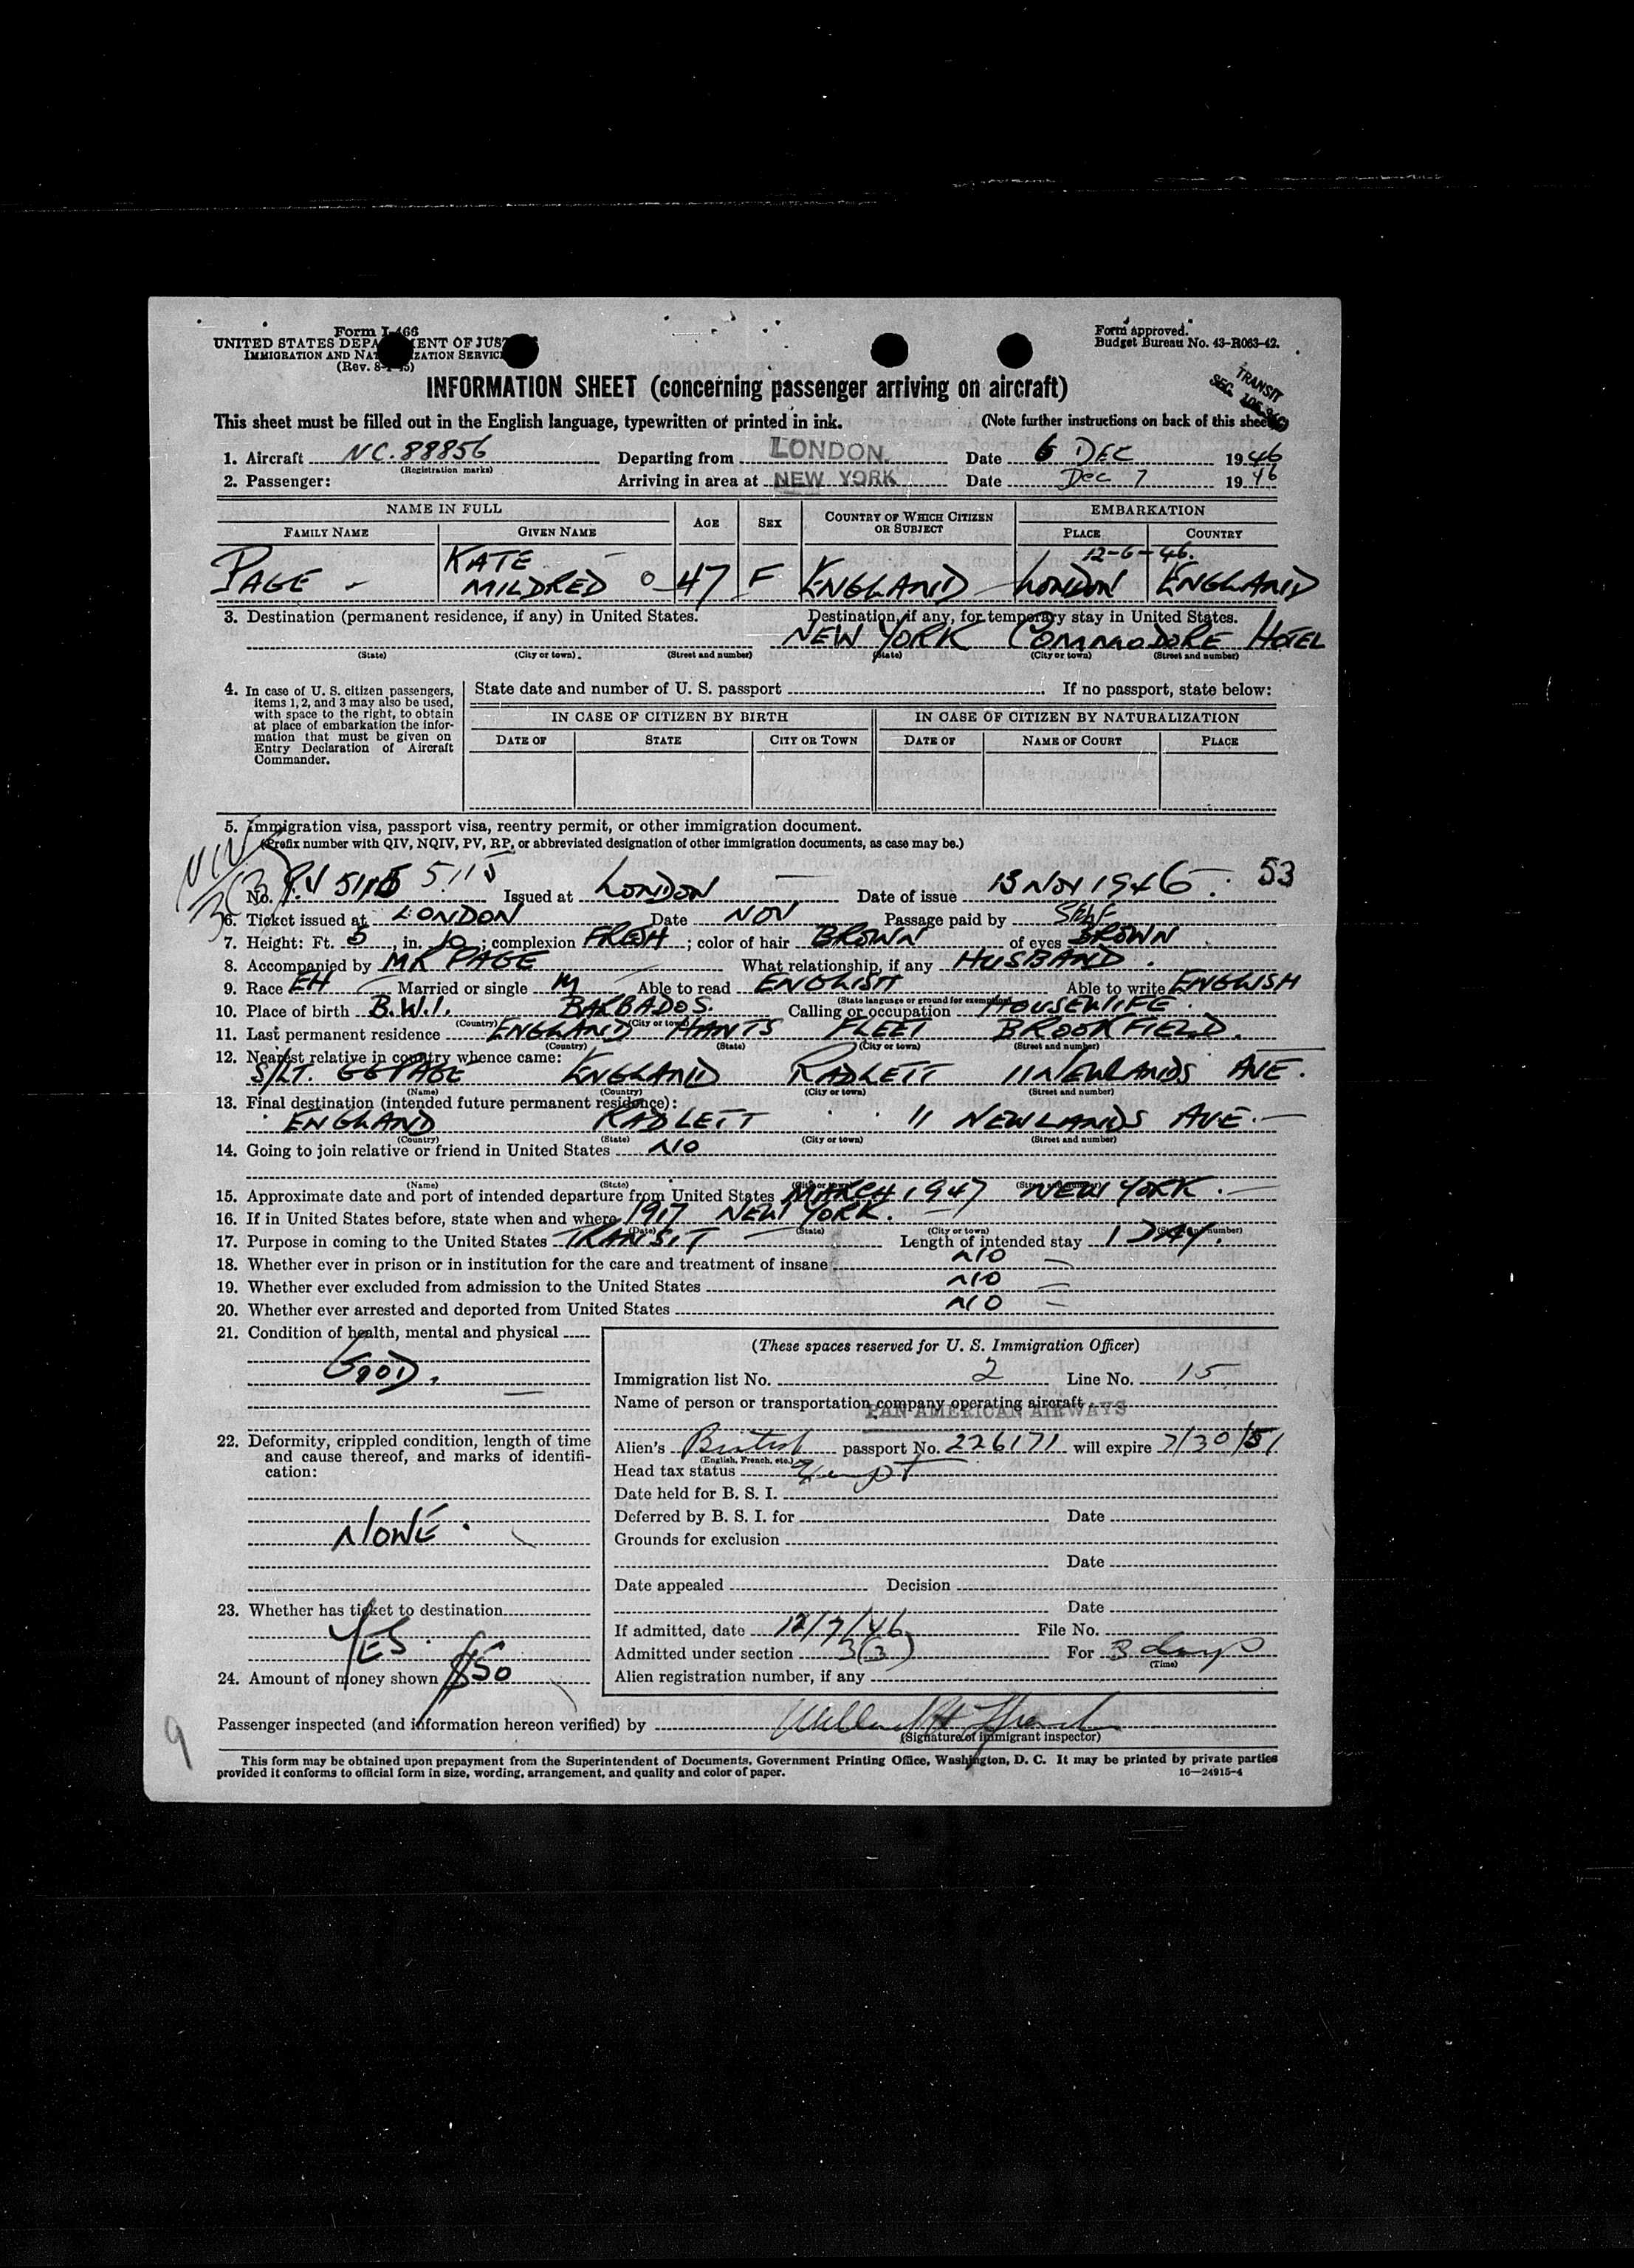 Form I-466
UNITED STATES DEPARTMENT OF JUSTICE
IMMIGRATION AND NATURALIZATION SERVICE
(Rev. 8-1-45)
Form approved.
Budget Bureau No. 43-R063-42.
INFORMATION SHEET (concerning passenger arriving on aircraft)
TRANSIT
SEC.
This sheet must be filled out in the English language, typewritten or printed in ink. (Note further instructions on back of this sheet)
1. Aircraft NC.88856 Departing from LONDON. Date 6 DEC 1946
(Registration marks)
2. Passenger: Arriving in area at NEW YORK Date Dec 7 1946
NAME IN FULL AGE SEX COUNTRY OF WHICH CITIZEN OR SUBJECT EMBARKATION
FAMILY NAME GIVEN NAME PLACE COUNTRY
12-6-46.
PAGE - KATE MILDRED 47 F ENGLAND LONDON ENGLAND
3. Destination (permanent residence, if any) in United States. Destination, if any, for temporary stay in United States.
NEW YORK COMMODORE HOTEL
(State) (City or town) (Street and number) (State) (City or town) (Street and number)
4. In case of U. S. citizen passengers, items 1, 2, and 3 may also be used, with space to the right, to obtain at place of embarkation the information that must be given on Entry Declaration of Aircraft Commander.
State date and number of U. S. passport If no passport, state below:
IN CASE OF CITIZEN BY BIRTH IN CASE OF CITIZEN BY NATURALIZATION
DATE OF STATE CITY OR TOWN DATE OF NAME OF COURT PLACE
5. Immigration visa, passport visa, reentry permit, or other immigration document.
(Prefix number with QIV, NQIV, PV, RP, or abbreviated designation of other immigration documents, as case may be.)
3(3)
No. P.V 5115 5115 Issued at LONDON Date of issue 13 NOV 1946. 53
6. Ticket issued at LONDON Date NOV Passage paid by SELF
7. Height: Ft. 5, in. 10; complexion FRESH; color of hair BROWN of eyes BROWN
8. Accompanied by MR PAGE What relationship, if any HUSBAND.
9. Race EH Married or single M Able to read ENGLISH Able to write ENGLISH
(State language or ground for exemption)
10. Place of birth B.W.I. BARBADOS. Calling or occupation HOUSEWIFE.
(Country) (City or town)
11. Last permanent residence ENGLAND HANTS FLEET BROOKFIELD.
(Country) (State) (City or town) (Street and number)
12. Nearest relative in country whence came:
S/LT. GGPAGE ENGLAND RADLETT 11 NEWLANDS AVE.
(Name) (Country) (City or town) (Street and number)
13. Final destination (intended future permanent residence):
ENGLAND RADLETT 11 NEWLANDS AVE.
(Country) (State) (City or town) (Street and number)
14. Going to join relative or friend in United States NO
(Name) (State) (City or town) (Street and number)
15. Approximate date and port of intended departure from United States MARCH 1947 NEW YORK.
16. If in United States before, state when and where 1917 NEW YORK.
(Date) (State) (City or town) (Street and number)
17. Purpose in coming to the United States TRANSIT Length of intended stay 1 DAY.
18. Whether ever in prison or in institution for the care and treatment of insane NO
19. Whether ever excluded from admission to the United States NO
20. Whether ever arrested and deported from United States NO
21. Condition of health, mental and physical
GOOD.
22. Deformity, crippled condition, length of time and cause thereof, and marks of identification:
NONE.
23. Whether has ticket to destination
YES.
24. Amount of money shown $50
(These spaces reserved for U. S. Immigration Officer)
Immigration list No. 2 Line No. 15
Name of person or transportation company operating aircraft
PAN AMERICAN AIRWAYS
Alien's British passport No. 226171 will expire 7/30/51
(English, French, etc.)
Head tax status Exempt
Date held for B. S. I.
Deferred by B. S. I. for Date
Grounds for exclusion
Date
Date appealed Decision
Date
If admitted, date 12/7/46 File No.
Admitted under section 3(3) For 3 days
(Time)
Alien registration number, if any
Passenger inspected (and information hereon verified) by
(Signature of immigrant inspector)
9
This form may be obtained upon prepayment from the Superintendent of Documents, Government Printing Office, Washington, D. C. It may be printed by private parties
provided it conforms to official form in size, wording, arrangement, and quality and color of paper. 16—24915-4